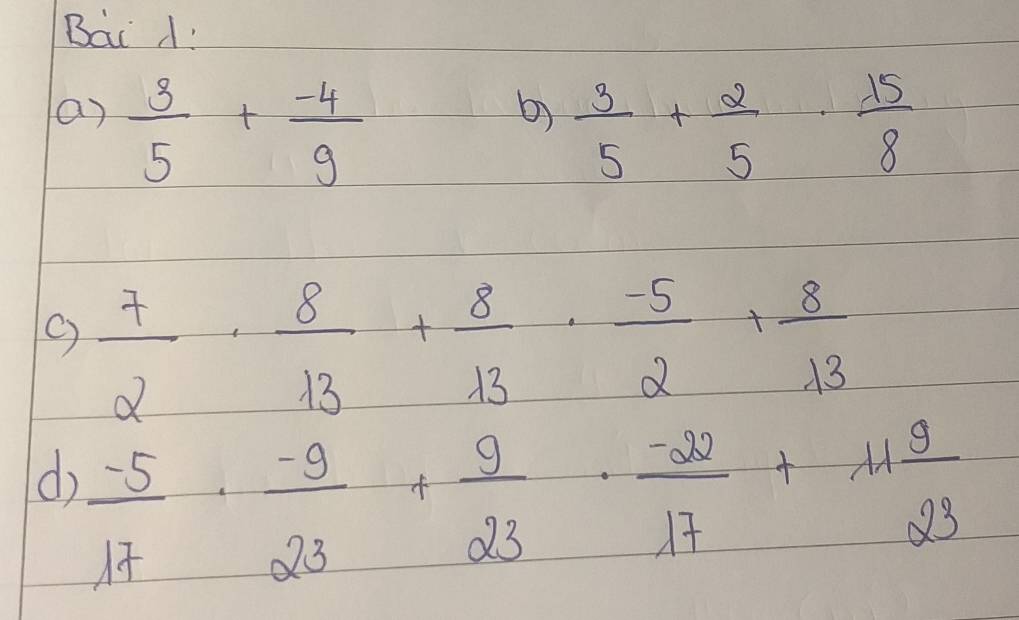 Bài 1:
a) 3/5 + -4/9 b) 3/5 + 2/5 . 15/8
c) 7/2 . 8/13 + 8/13 . -5/2 + 8/13
d) -5/17 . -9/23 + 9/23 . -22/17 + 11 9/23